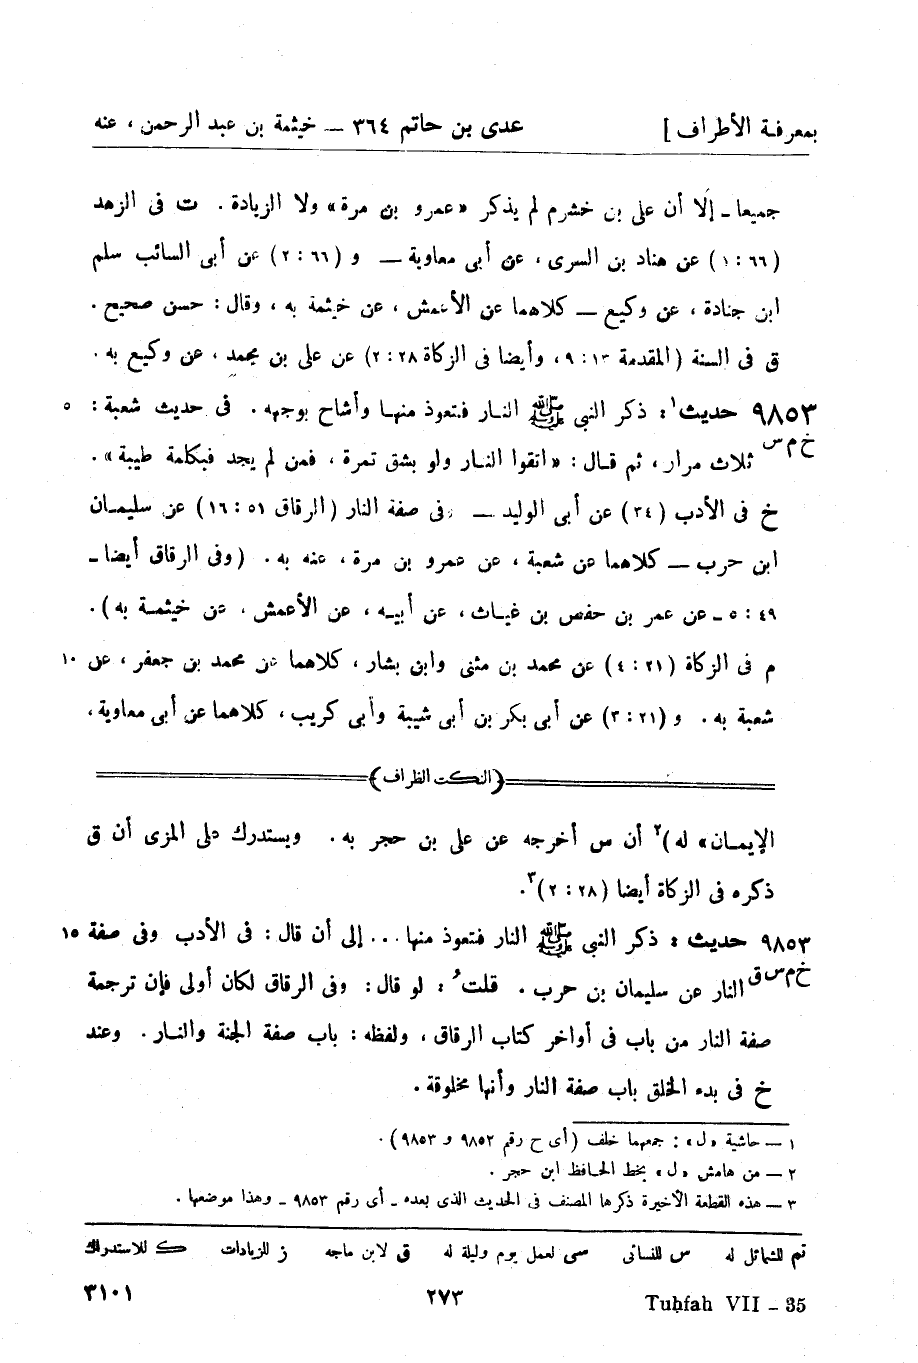 بمعرفة الأطراف ] عدى بن حاتم ٣٦٤ — خيثمة بن عبد الرحمن ، عنه
جميعا ـ إلا أن على بن خشرم لم يذكر «عمرو بن مرة» ولا الزيادة . ت فى الزهد
(٦٦ : ١) عن هناد بن السرى ، عن أبى معاوية — و (٦٦ : ٢) عن أبى السائب سلم
ابن جنادة ، عن وكيع — كلاهما عن الأعمش ، عن خيثمة به ، وقال : حسن صحيح .
ق فى السنة (المقدمة ١٣ : ٩ ، وأيضا فى الزكاة ٢٨ : ٢) عن على بن محمد ، عن وكيع به .
٩٨٥٣ حديث١ : ذكر النبي ﷺ النار فتعوذ منها وأشاح بوجهه . فى حديث شعبة : ٥
خ م س ثلاث مرار ، ثم قال : «اتقوا النار ولو بشق تمرة ، فمن لم يجد فبكلمة طيبة» .
خ فى الأدب (٣٤) عن أبى الوليد — وفى صفة النار (الرقاق ٥١ : ١٦) عن سليمان
ابن حرب — كلاهما عن شعبة ، عن عمرو بن مرة ، عنه به . (وفى الرقاق أيضا ـ
٤٩ : ٥ ـ عن عمر بن حفص بن غياث ، عن أبيه ، عن الأعمش ، عن خيثمة به) .
م فى الزكاة (٢١ : ٤) عن محمد بن مثنى وابن بشار ، كلاهما عن محمد بن جعفر ، عن ١٠
شعبة به . و (٢١ : ٣) عن أبى بكر بن أبى شيبة وأبى كريب ، كلاهما عن أبى معاوية ،
(النكت الظراف)
الإيمان» له)٢ أن س أخرجه عن على بن حجر به . ويستدرك على المزى أن ق
ذكره فى الزكاة أيضا (٢٨ : ٢)٣.
٩٨٥٣ حديث : ذكر النبي ﷺ النار فتعوذ منها ... إلى أن قال : فى الأدب وفى صفة ١٥
خ م س ق النار عن سليمان بن حرب . قلت : لو قال : وفى الرقاق لكان أولى فإن ترجمة
صفة النار من باب فى أواخر كتاب الرقاق ، ولفظه : باب صفة الجنة والنار . وعند
خ فى بدء الخلق باب صفة النار وأنها مخلوقة .
١ — حاشية «ل» : جمعهما خلف (أى ح رقم ٩٨٥٢ و ٩٨٥٣) .
٢ — من هامش «ل» بخط الحافظ ابن حجر .
٣ — هذه القطعة الأخيرة ذكرها المصنف فى الحديث الذى بعده ـ أى رقم ٩٨٥٣ ـ وهذا موضعها .
تم للشمائل له س للنسائى سى لعمل يوم وليلة له ق لابن ماجه ز للزيادات ك للاستدراك
٣١٠١ ٢٧٣ Tuḥfah VII – 35